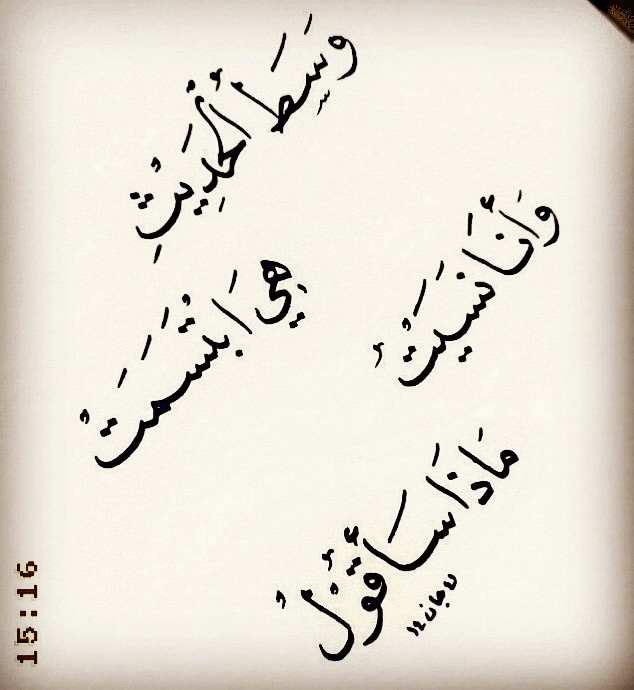 وَسَطَ الْحَدِيْثِ
هِيَ ابْتَسَمَتْ
وَأَنَا نَسَيْتُ
مَاذَا سَأَقُوْلُ
15:16